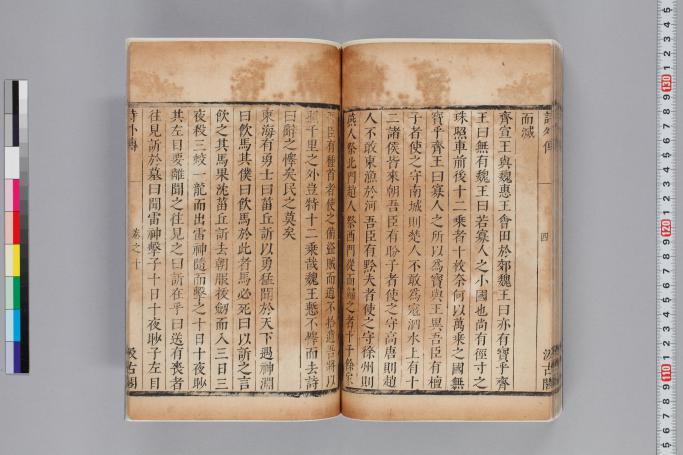 詩外傳
四
汲古閣
而滅
齊宣王與魏惠王會田於郊魏王曰亦有寶乎齊
王曰無有魏王曰若寡人之小國也尚有徑寸之
珠照車前後十二乘者十枚奈何以萬乘之國無
寶乎齊王曰寡人之所以為寶與王異吾臣有檀
子者使之守南城則楚人不敢為寇泗水上有十
二諸侯皆來朝吾臣有盼子者使之守高唐則趙
人不敢東漁於河吾臣有黔夫者使之守徐州則
燕人祭北門趙人祭西門從而歸之者十千餘家
吾臣有種首者使之備盜賊而道不拾遺吾將以
照千里之外豈特十二乘哉魏王慙不懌而去詩
曰辭之懌矣民之莫矣
東海有勇士曰菑丘訢以勇猛聞於天下過神淵
曰飲馬其僕曰飲馬於此者馬必死曰以訢之言
飲之其馬果沈菑丘訢去朝服拔劒而入三日三
夜殺三蛟一龍而出雷神隨而擊之十日十夜眇
其左目要離聞之往見之曰訢在乎曰送有喪者
往見訢於墓曰聞雷神擊子十日十夜眇子左目
詩外傳
卷之十
汲古閣